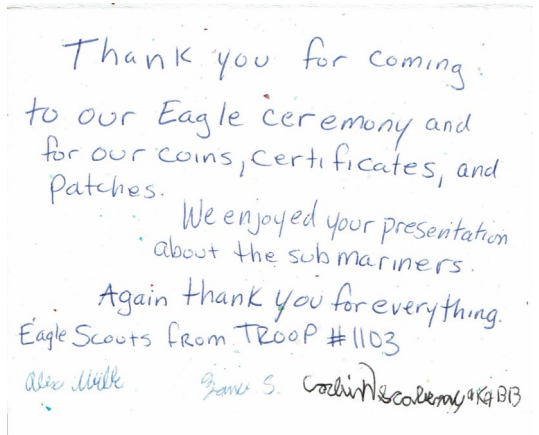 Thank you for coming
to our Eagle ceremony and
for our coins, certificates, and
Patches.
We enjoyed your presentation
about the submariners.
Again thank you for everything.
Eagle Scouts from TROOP #1103
Alex S. AKA BB